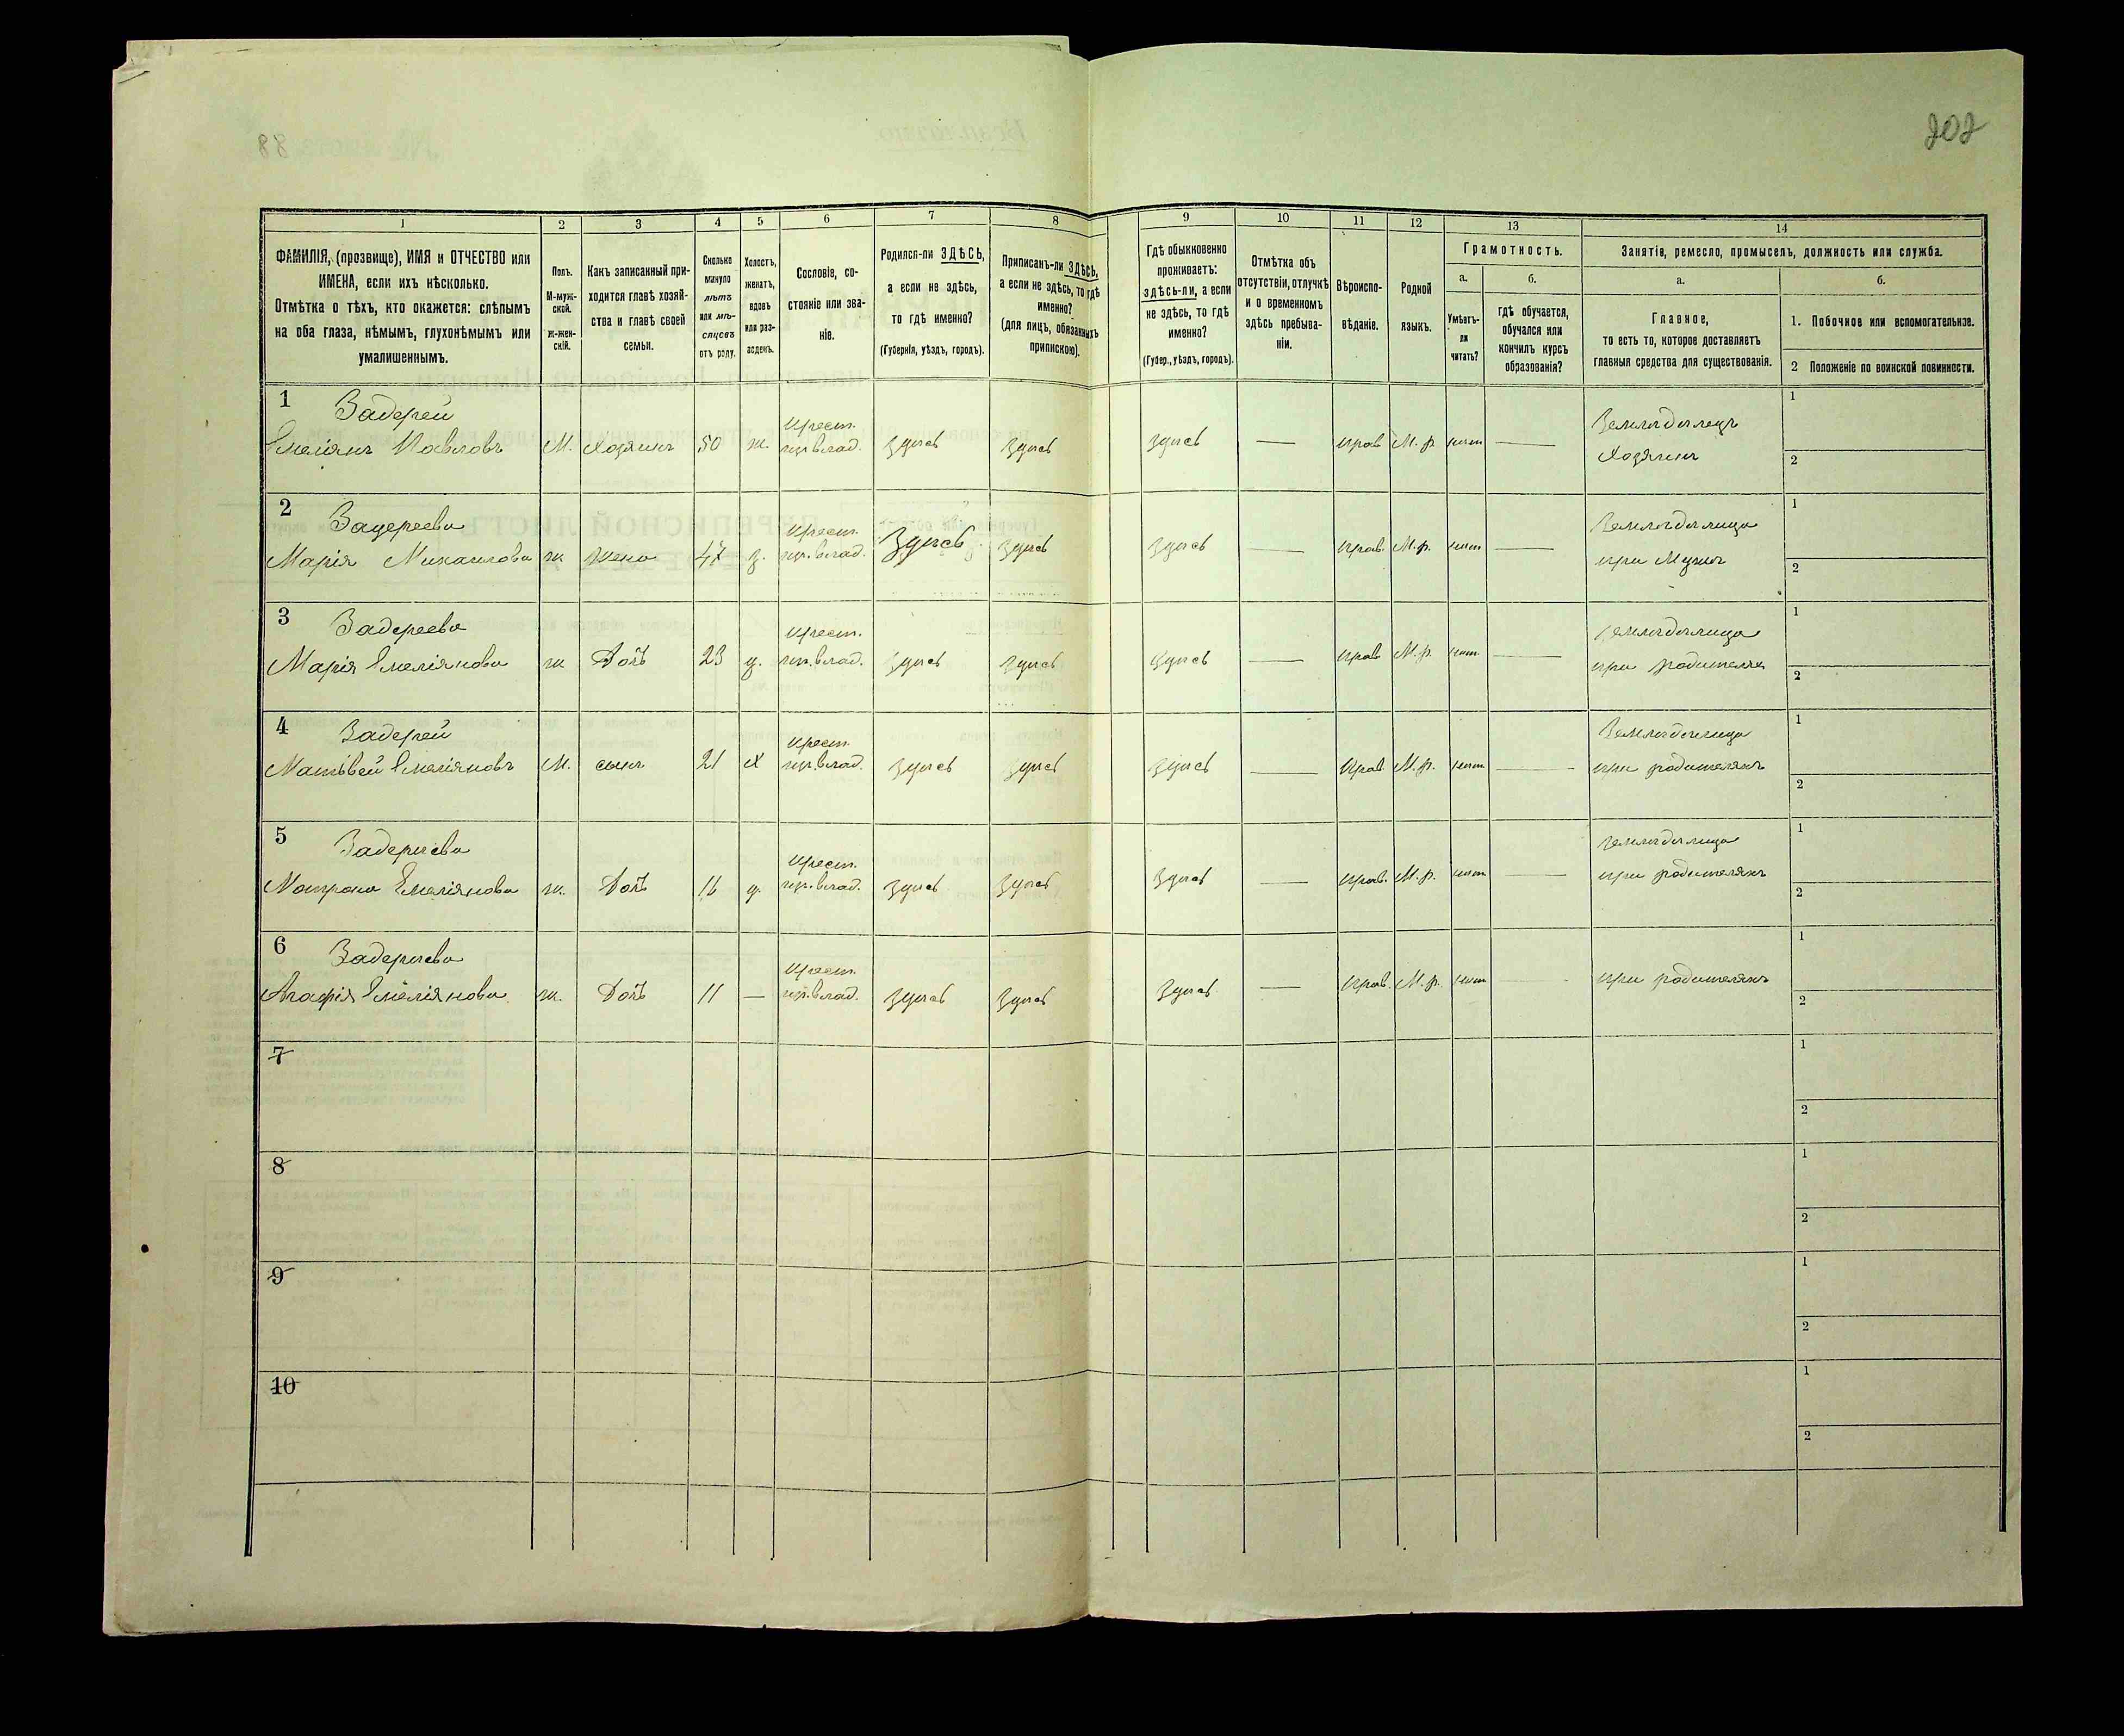 202
1 2 3 4 5 6 7 8 9 10 11 12 13 14
ФАМИЛІЯ, (прозвище), ИМЯ и ОТЧЕСТВО или
ИМЕНА, если ихъ нѣсколько.
Отмѣтка о тѣхъ, кто окажется: слѣпымъ
на оба глаза, нѣмымъ, глухонѣмымъ или
умалишеннымъ.
Полъ.
М-муж-
ской.
ж-жен-
скій.
Какъ записанный при-
ходится главѣ хозяй-
ства и главѣ своей
семьи.
Сколько
минуло
лѣтъ
или мѣ-
сяцевъ
отъ роду.
Холостъ,
женатъ,
вдовъ
или раз-
веденъ.
Сословіе, со-
стояніе или зва-
ніе.
Родился-ли ЗДѢСЬ,
а если не здѣсь,
то гдѣ именно?
(Губернія, уѣздъ, городъ).
Приписанъ-ли ЗДѢСЬ,
а если не здѣсь, то гдѣ
именно?
(для лицъ, обязанныхъ
припискою).
Гдѣ обыкновенно
проживаетъ:
здѣсь-ли, а если
не здѣсь, то гдѣ
именно?
(Губер., уѣздъ, городъ).
Отмѣтка объ
отсутствіи, отлучкѣ
и о временномъ
здѣсь пребыва-
ніи.
Вѣроиспо-
вѣданіе.
Родной
языкъ.
Грамотность.
а.
Умѣетъ-
ли
читать?
б.
гдѣ обучается,
обучался или
кончилъ курсъ
образованія?
Занятія, ремесло, промыселъ, должность или служба.
а.
Главное,
то есть то, которое доставляетъ
главныя средства для существованія.
б.
1. Побочное или вспомогательное.
2 Положеніе по воинской повинности.
1 Задерей крест. Земледѣлецъ 1
Емеліянъ Павловъ М. Хозяинъ 50 ж. гр. влад. здѣсь здѣсь здѣсь — прав М. р. нѣт — Хозяинъ 2
2 Задереева крест. Земледѣлица 1
Марія Михаилова ж жена 47 з. гр. влад. Здѣсь здѣсь здѣсь — прав. М. р. нѣт — при Мужѣ 2
3 Задереева крест. земледѣлица 1
Марія Емеліянова ж Дочь 23 д. гр. влад. здѣсь здѣсь здѣсь — прав М. р. нѣт при родителях 2
4 Задерей крест. Земледѣлица 1
Матвѣей Емеліяновъ М. сынъ 21 х гр. влад. здѣсь здѣсь здѣсь — прав М. р. нѣт — при родителяхъ 2
5 Задерѣева крест. земледѣлица 1
Матрона Емеліянова ж. Дочь 16 д. гр. влад. здѣсь здѣсь здѣсь — прав. М. р. нѣт — при родителяхъ 2
6 Задерѣева крест. 1
Агафія Емеліянова ж. Дочь 11 — гр. влад. здѣсь здѣсь здѣсь — прав. М. р. нѣт — при родителяхъ 2
7 1
2
8 1
2
9 1
2
10 1
2